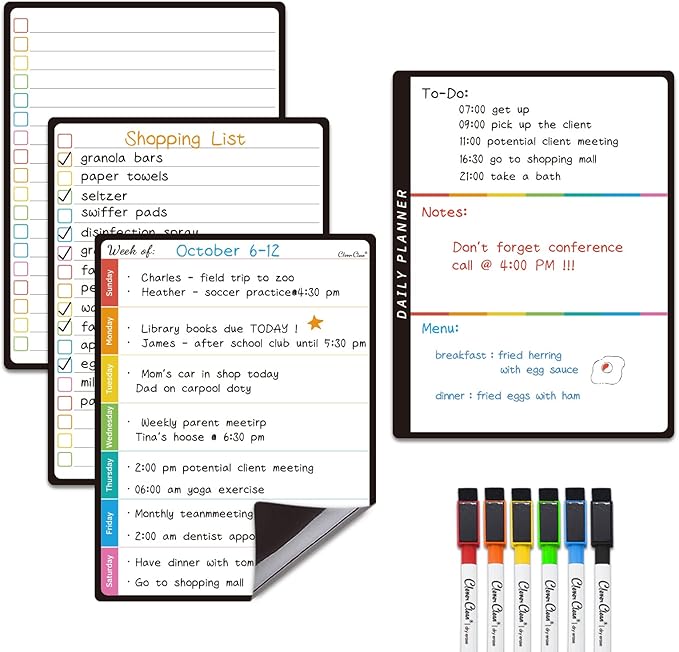 Shopping List
granola bars
paper towels
seltzer
swiffer pads
disinfection spray
Week of: October 6-12
Clever Clean
Sunday
· Charles - field trip to zoo
· Heather - soccer practice@4:30 pm
Monday
· Library books due TODAY !
· James - after school club until 5:30 pm
Tuesday
· Mom's car in shop today
Dad on carpool doty
Wednesday
· Weekly parent meetirp
Tina's hoose @ 6:30 pm
Thursday
· 2:00 pm potential client meeting
· 06:00 am yoga exercise
Friday
· Monthly teammmeeting
· 2:00 am dentist appo
Saturday
· Have dinner with tom
· Go to shopping mall
DAILY PLANNER
To-Do:
07:00 get up
09:00 pick up the client
11:00 potential client meeting
16:30 go to shopping mall
21:00 take a bath
Notes:
Don't forget conference
call @ 4:00 PM !!!
Menu:
breakfast : fried herring
with egg sauce
dinner : fried eggs with ham
Clever Clean
dry erase
Clever Clean
dry erase
Clever Clean
dry erase
Clever Clean
dry erase
Clever Clean
dry erase
Clever Clean
dry erase